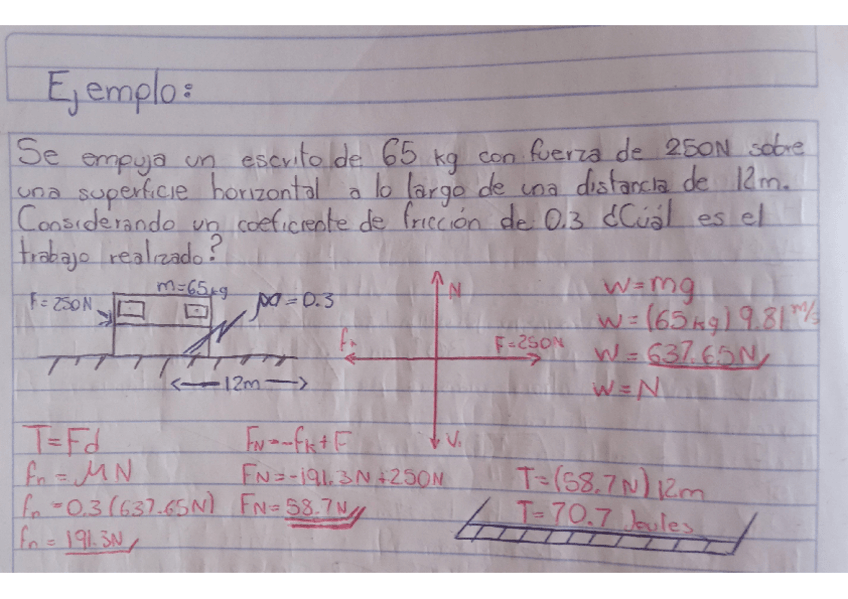 Ejemplo:
Se empuja un escrito.de 65 kg con fuerza de 250N sobre
una superficie horizontal a lo largo de una distancia de 12m.
Considerando un coeficiente de fricción de 0.3 ¿Cuál es el
trabajo realizado?
F=250N
m=65kg
=0.3
12m
N
F=250N
W=mg
W=(65kg)9.81m/s
W=637.65N
W=N
T=Fd
fn=μN
fn=0.3(637.65N)
fn=191.3N
FN=-fk+F
FN=-191.3N+250N
FN=58.7N
T=(58.7N)12m
T=70.7 Joules